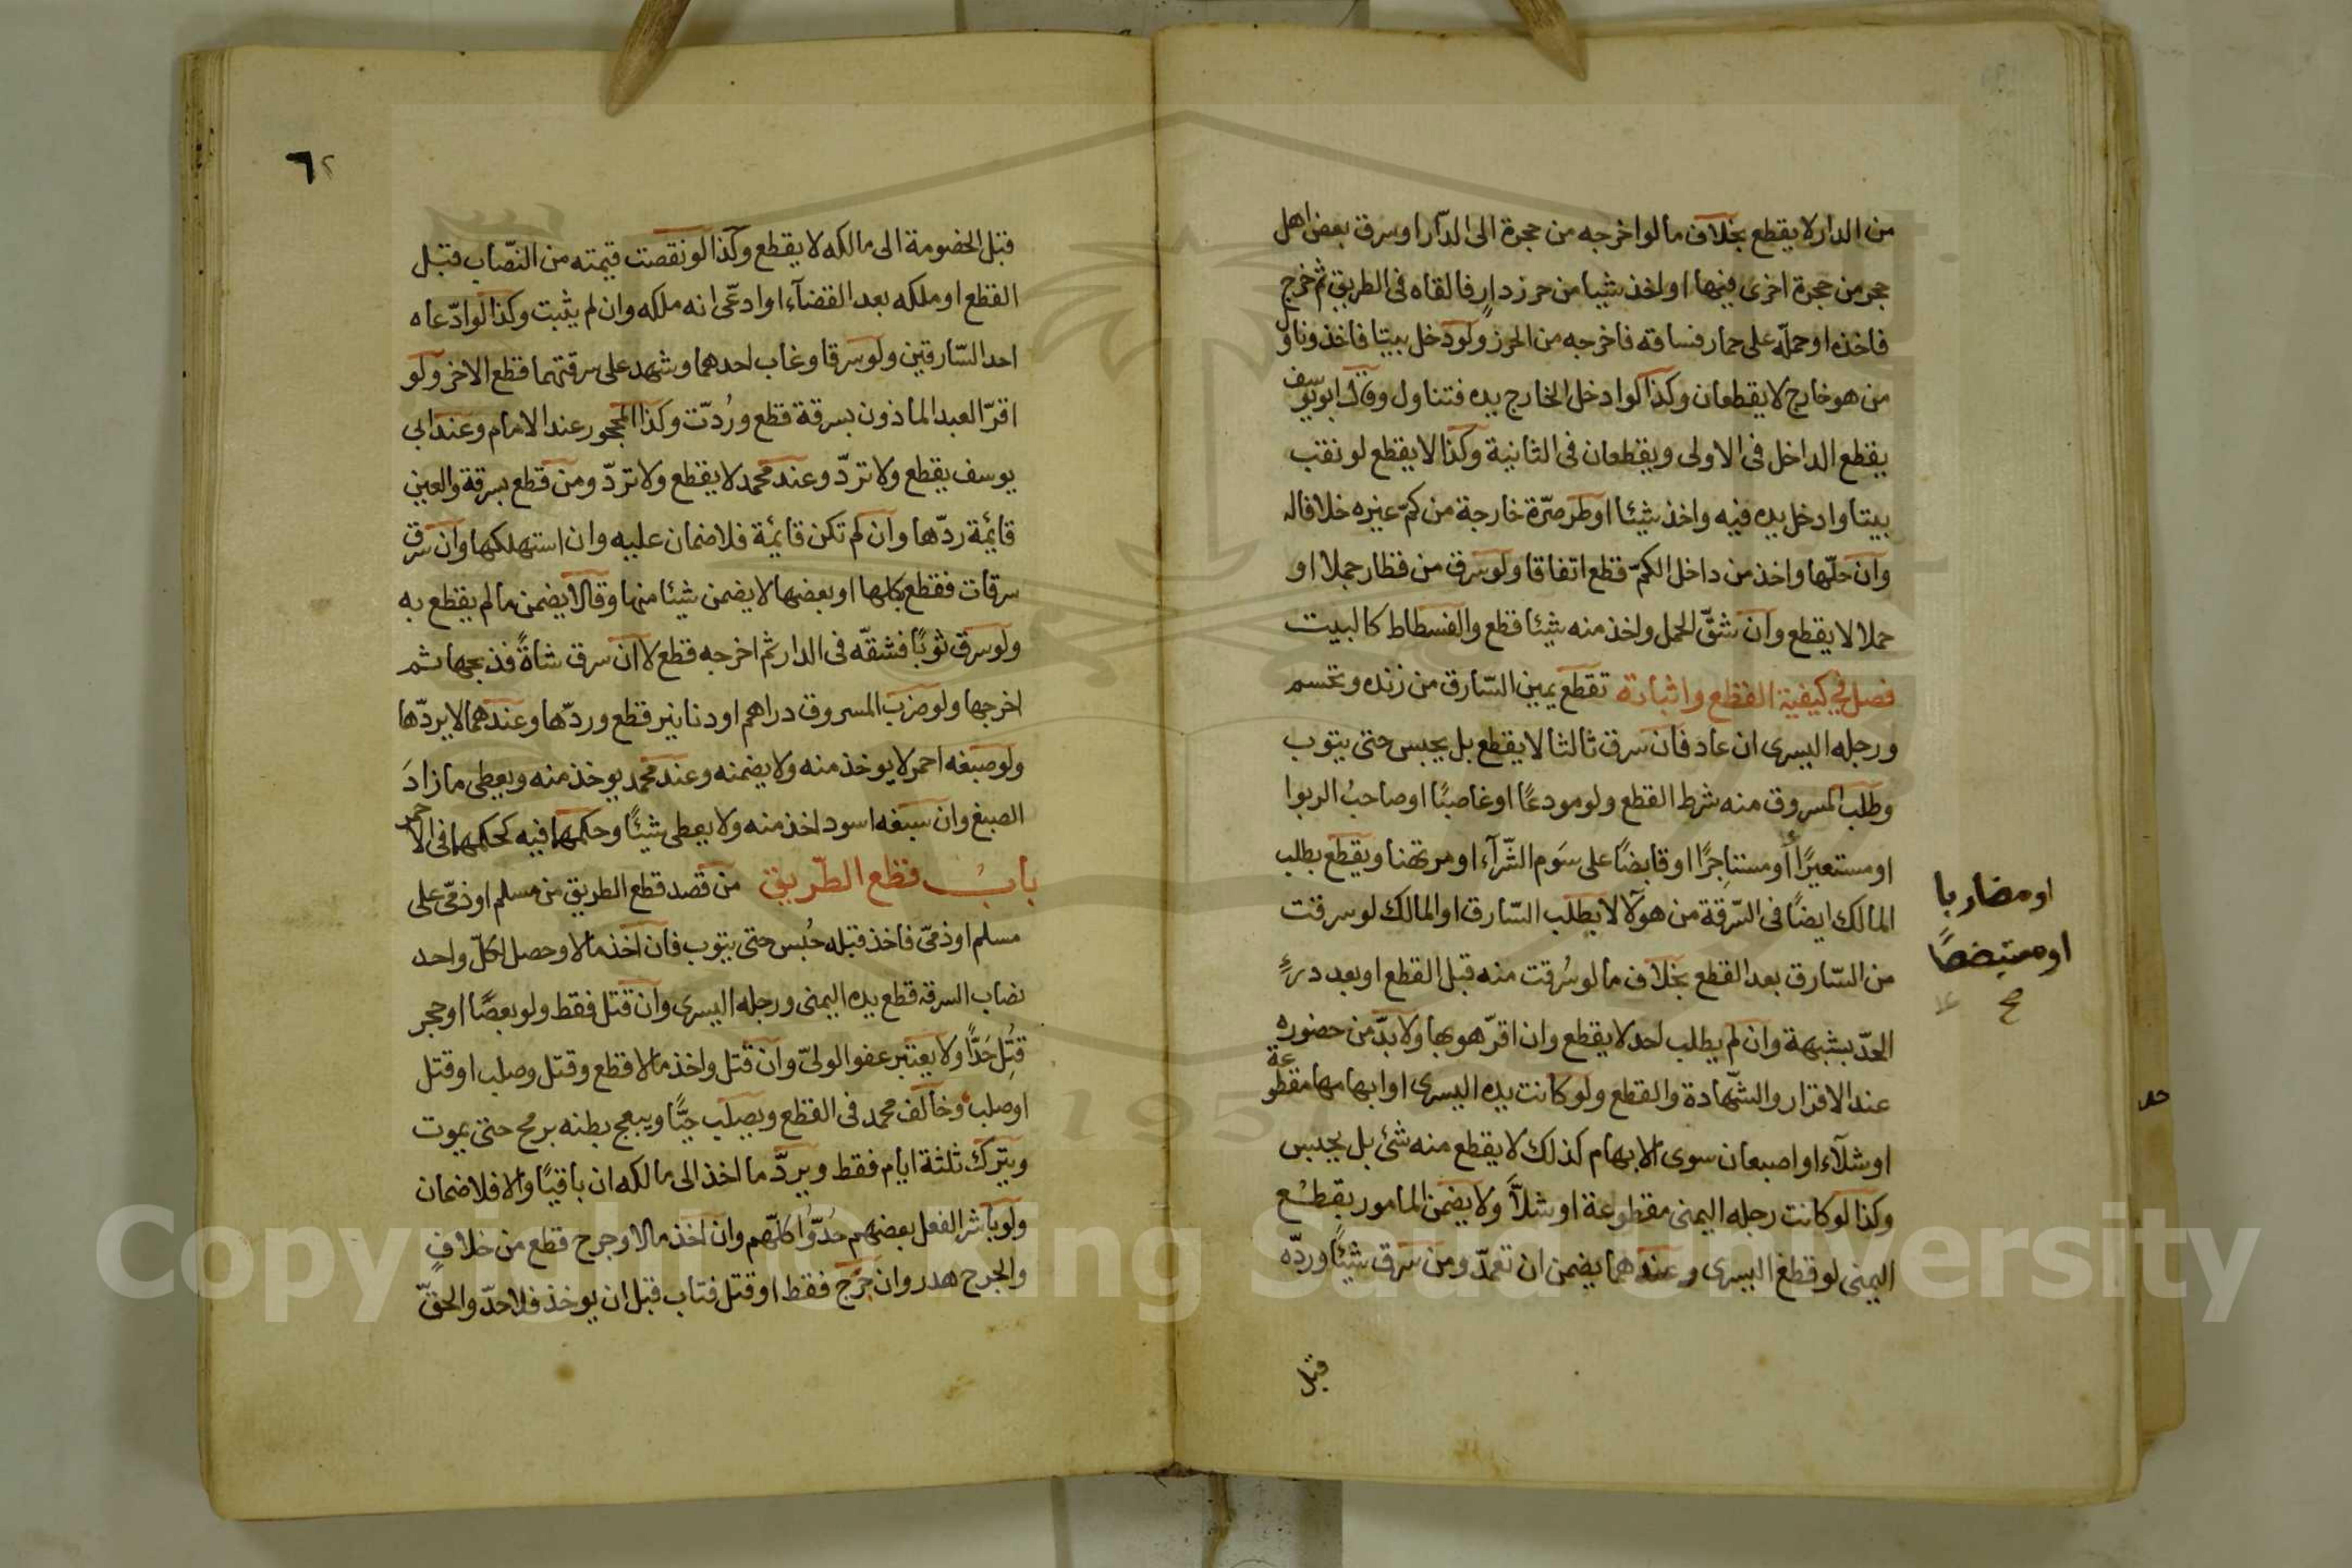 من الدار لا يقطع بخلاف ما لو اخرجه من حجرة الى الدّار او سرق بعض اهل
حجر من حجرة اخرى فيها او اخذ شيا من حرز دارٍ فالقاه فى الطريق ثم خرج
فاخذه او حمله على حمار فساقه فاخرجه من الحرز ولو دخل بيتا فاخذ وناول
من هو خارج لا يقطعان وكذا لو ادخل الخارج يده فتناول وقال ابو يوسف
يقطع الداخل فى الاولى ويقطعان فى الثانية وكذا لا يقطع لو نقب
بيتا وادخل يده فيه واخذ شيئا او طر صرّة خارجة من كمّ غيره خلافا له
وان حلّها واخذ من داخل الكمّ قطع اتفاقا ولو سرق من قطار جملا او
حملا لا يقطع وان شقّ الحمل واخذ منه شيئا قطع والفسطاط كالبيت
فصل في كيفية القطع واثباته تقطع يمين السّارق من زنده وتحسم
ورجله اليسرى ان عاد فان سرق ثالثا لا يقطع بل يحبس حتى يتوب
وطلب المسروق منه شرط القطع ولو مودعًا او غاصبًا او صاحبُ الربوا
او مستعيرًا أو مستاجِرًا او قابضًا على سَوم الشّرآء او مرتهنا ويقطع بطلب
المالك ايضًا فى السّرقة من هولآ لا بطلب السّارق او المالك لو سرقت
من السّارق بعد القطع بخلاف ما لو سُرقت منه قبل القطع او بعد درءٍ
الحدّ بشبهة وان لم يطلب احد لا يقطع وان اقرّ هو بها ولا بدّ من حضوره
عند الاقرار والشّهادة والقطع ولو كانت يده اليسرى او ابهامها مقطوعة
او شلآء او اصبعان سوى الابهام كذلك لا يقطع منه شئ بل يحبس
وكذا لو كانت رجله اليمنى مقطوعة او شلآ ولا يضمن المامور بقطع
اليمنى لو قطع اليسرى وعندهما يضمن ان تعمدّ ومن سرق شيئًا وردّه
او مضاربا
او مستبضعًا
صح
قبل
حد
٦٢
قبل الخصومة الى مالكه لا يقطع وكذا لو نقصت قيمته من النصّاب قبل
القطع او ملكه بعد القضآء او ادعّى انه ملكه وان لم يثبت وكذا لو ادّعاه
احد السّارقين ولو سرقا وغاب احدهما وشهد على سرقتهما قطع الاخر ولو
اقرّ العبد الماذون بسرقة قطع ورُدّت وكذا المحجور عند الامام وعند ابى
يوسف يقطع ولا تردّ وعند محمد لا يقطع ولا تردّ ومن قطع بسرقة والعين
قائمة ردّها وان لم تكن قائمة فلا ضمان عليه وان استهلكها وان سرق
سرقات فقطع بكلها او بعضها لا يضمن شيئا منها وقالا يضمن ما لم يقطع به
ولو سرق ثوبًا فشقّه فى الدار ثم اخرجه قطع لا ان سرق شاةً فذبحها ثم
اخرجها ولو ضرب المسروق دراهم او دنانير قطع وردّها وعندهما لا يردّها
ولو صبغه احمر لا يوخذ منه ولا يضمنه وعند محمد يوخذ منه ويعطى ما زادَ
الصبغ وان سبغه اسود اخذ منه ولا يعطى شيئًا وحكمها فيه كحكمها فى الاحمر
بابُ قطع الطّريق من قصد قطع الطريق من مسلم او ذمّى على
مسلم او ذمىّ فاخذ قبله حُبس حتى يتوب فان اخذ مالا وحصل لكلّ واحد
نصاب السرقة قطع يده اليمنى ورجله اليسرى وان قتل فقط ولو بعصًا او حجر
قُتِل حَدًّا ولا يعتبر عفو الولىّ وان قتل واخذ مالا قطع وقتل وصلب او قتل
او صلب وخالف محمد فى القطع ويصلب حيًّا ويبعج بطنه برمح حتى يموت
ويترك ثلثة ايام فقط ويردّ ما اخذ الى مالكه ان باقيًا والا فلا ضمان
ولو باشر الفعل بعضهم حُدّوُا كلّهم وان اخذ مالا وجرح قطع من خلافٍ
والجرح هدر وان جرح فقط او قتل فتاب قبل ان يوخذ فلا حدّ والحقّ
Copyright © King Saud University
1957